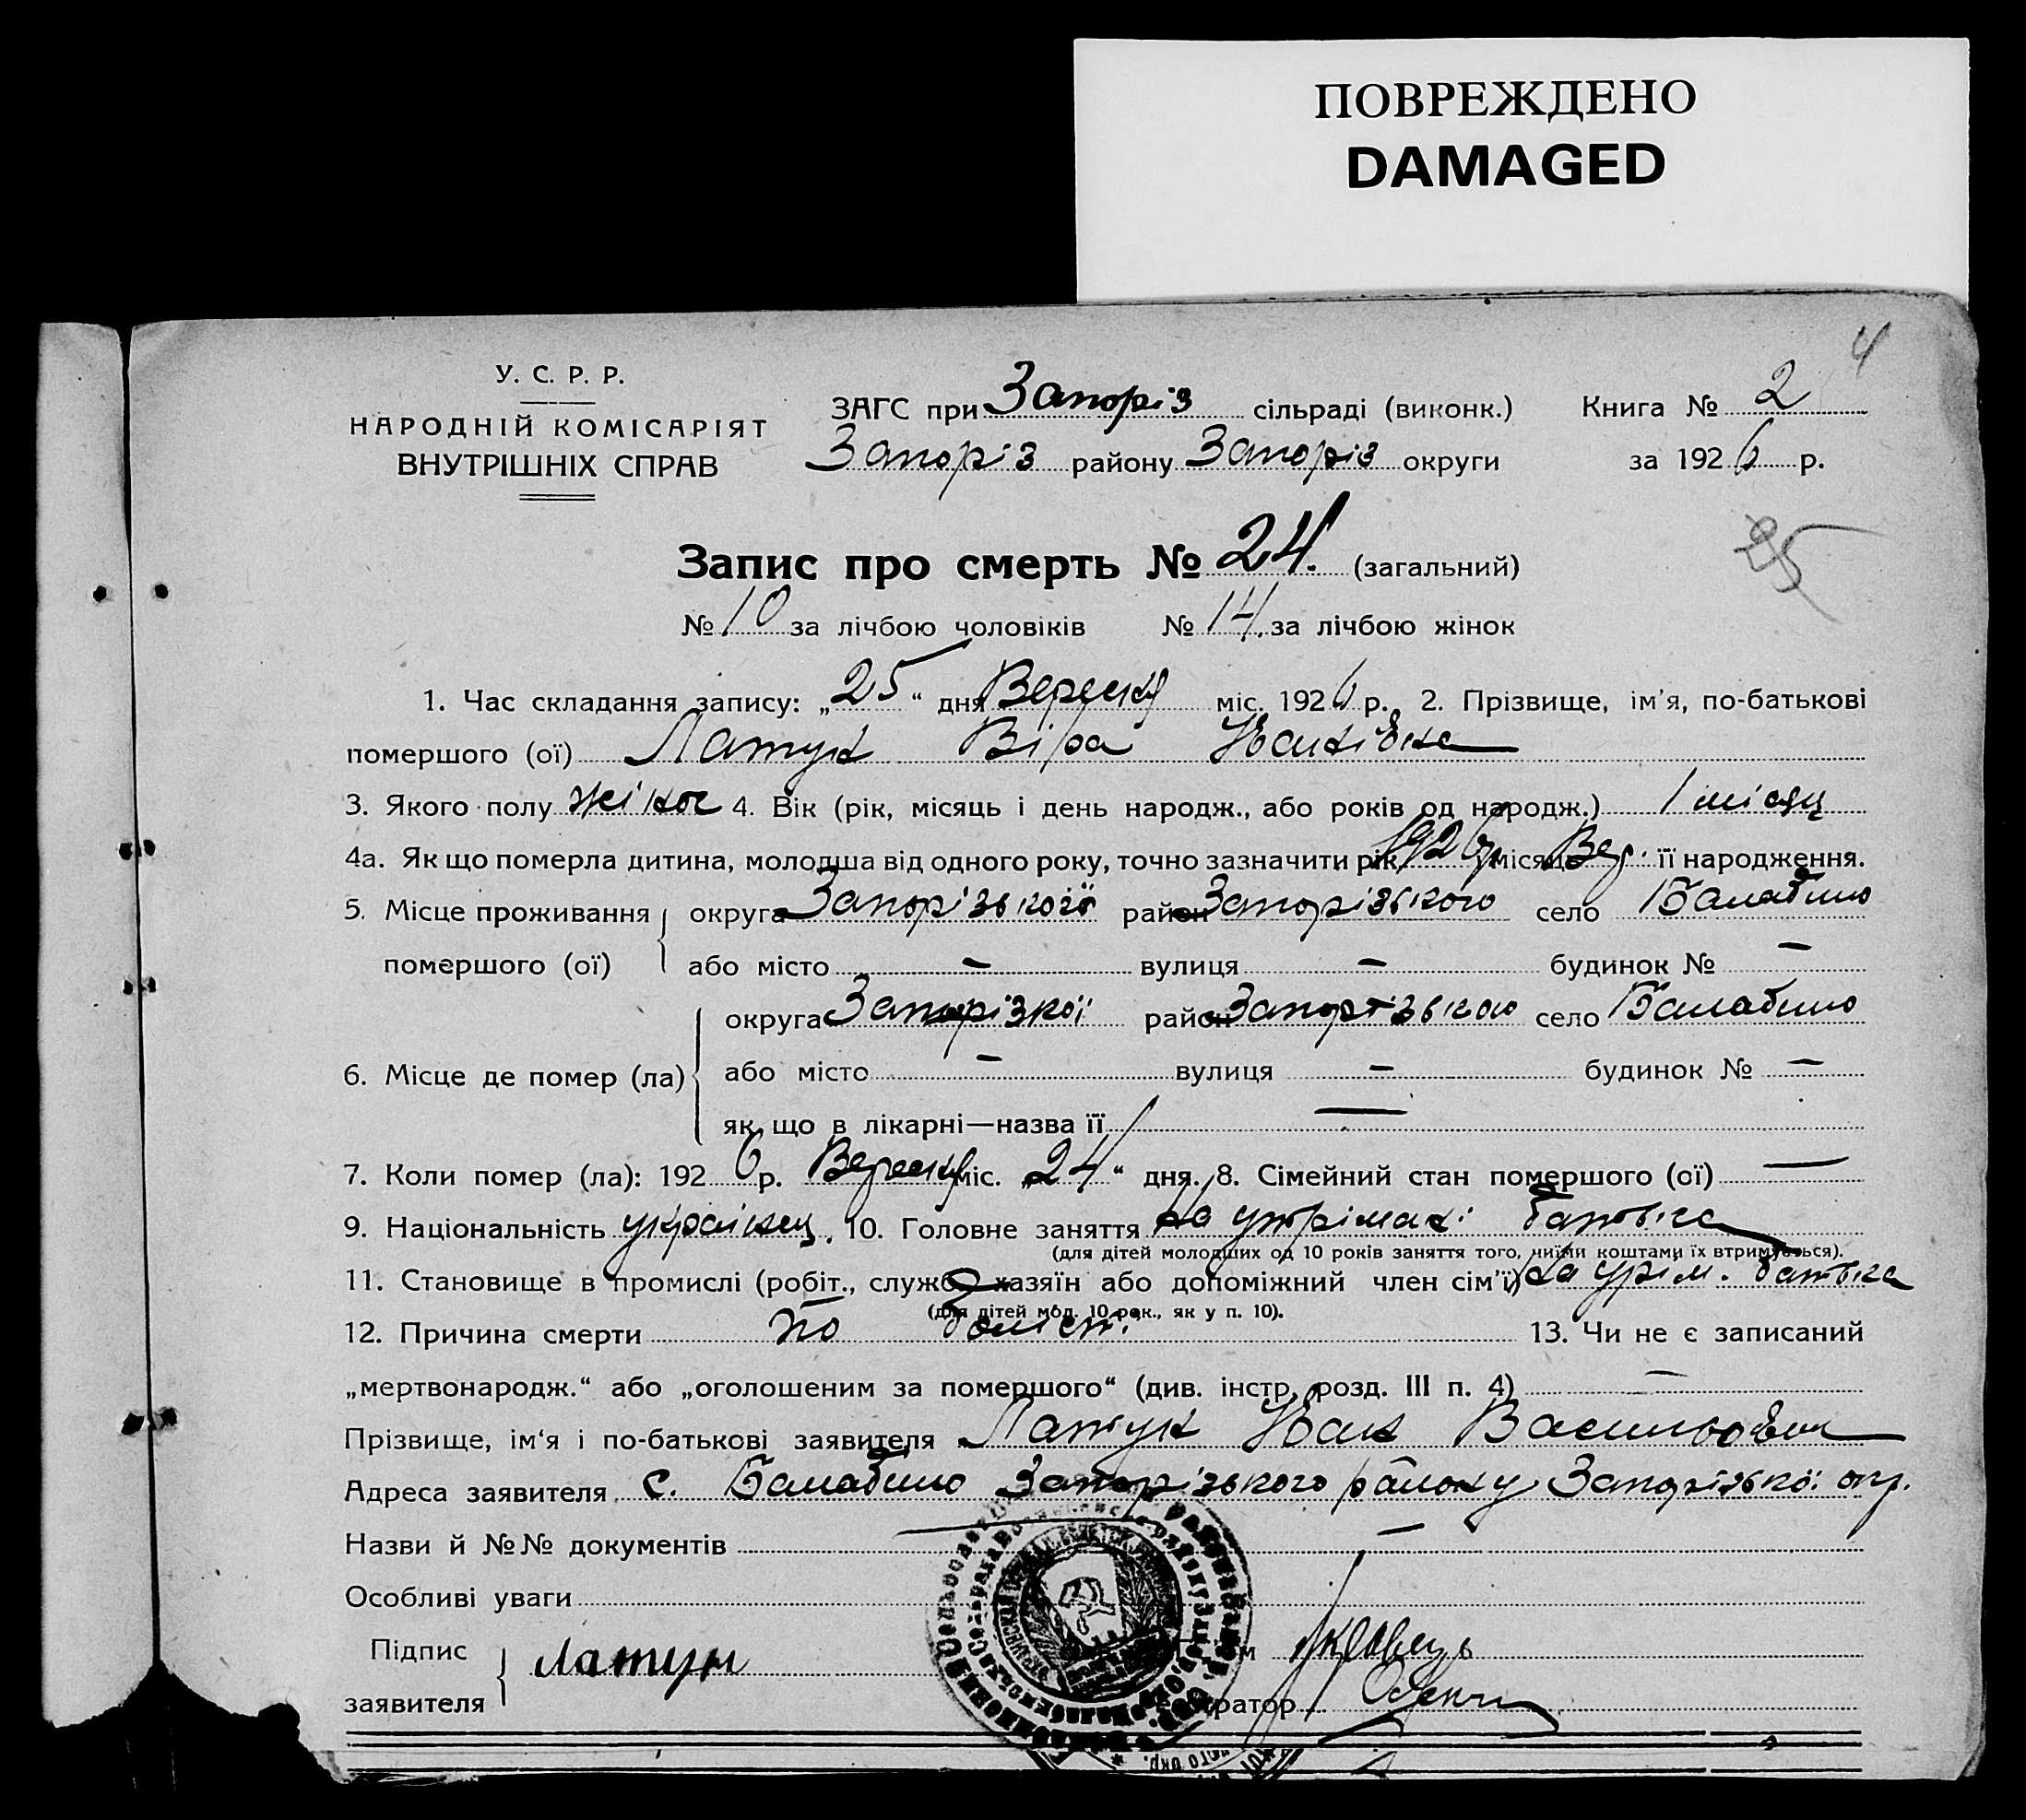 ПОВРЕЖДЕНО
DAMAGED
4
У. С. Р. Р.
НАРОДНІЙ КОМІСАРІЯТ
ВНУТРІШНІХ СПРАВ
ЗАГС при Запоріз сільраді (виконк.) Книга № 2
Запоріз району Запоріз округи за 1926 р.
25
Запис про смерть № 24. (загальний)
№ 10 за лічбою чоловіків № 14. за лічбою жінок
1. Час складання запису: „25“ дня Вересня міс. 1926 р. 2. Прізвище, ім'я, по-батькові
помершого (ої) Латун Віра Іванівна
3. Якого полу жіноч 4. Вік (рік, місяць і день народж., або років од народж.) 1 місяц
4а. Як що померла дитина, молодша від одного року, точно зазначити рік 1926 р місяць Вер. її народження.
5. Місце проживання округа Запорізької район Запорізького село Балабино
помершого (ої) або місто — вулиця — будинок № —
округа Запорізкої район Запорізького село Балабино
6. Місце де помер (ла) або місто — вулиця — будинок № —
як що в лікарні—назва її —
7. Коли помер (ла): 1926 р. Вересня міс. „24“ дня. 8. Сімейний стан помершого (ої) —
9. Національність українец. 10. Головне заняття На утрімані батька
(для дітей молодших од 10 років заняття того, чиїми коштами їх втримується).
11. Становище в промислі (робіт., службо хазяїн або допоміжний член сім'ї) На утрім. батька
(для дітей мол. 10 рок., як у п. 10).
12. Причина смерти по болест. 13. Чи не є записаний
„мертвонародж.“ або „оголошеним за помершого“ (див. інстр. розд. III п. 4) —
Прізвище, ім'я і по-батькові заявителя Латун Іван Васильович
Адреса заявителя с. Балабино Запорізького району Запорізької окр.
Назви й №№ документів —
Особливі уваги
Підпис
заявителя Латун